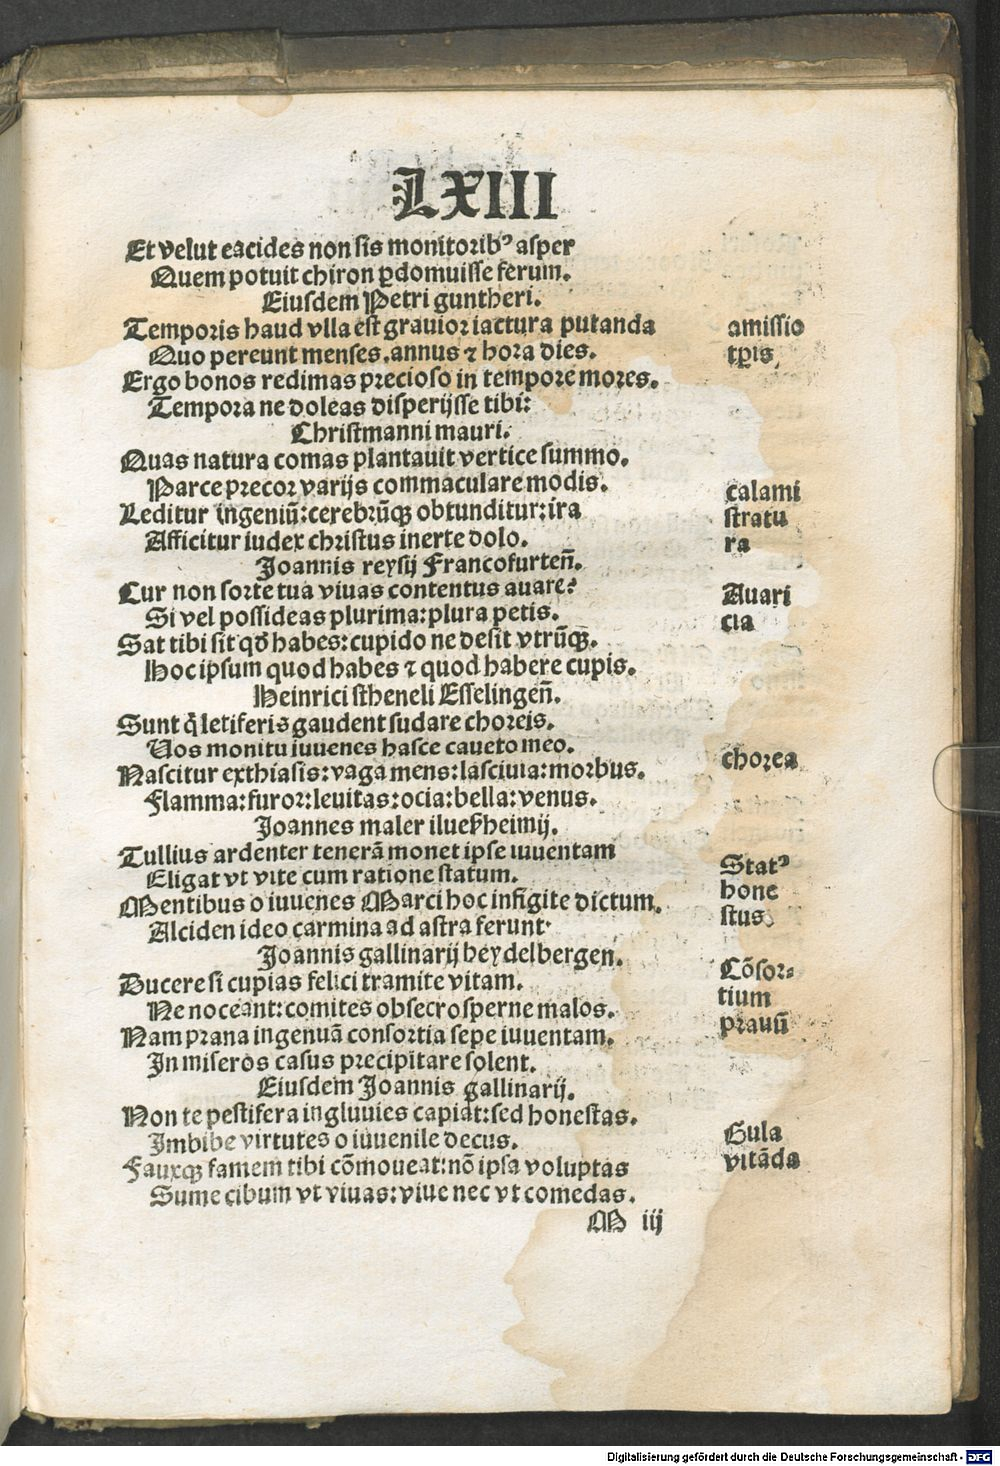 LXIII
Et velut eacides non sis monitoribꝰ asper
Quem potuit chiron ꝑdomuisse ferum.
Eiusdem Petri guntheri.
Temporis haud vlla est grauior iactura putanda
amissio
Quo pereunt menses. annus ⁊ hora dies.
tꝑis
Ergo bonos redimas precioso in tempore mores.
Tempora ne doleas disperijsse tibi:
Christmanni mauri.
Quas natura comas plantauit vertice summo.
Parce precor varijs commaculare modis.
calami
Leditur ingeniū: cerebrūqꝫ obtunditur: ira
stratu
Afficitur iudex christus inerte dolo.
ra
Joannis reysij Francofurteñ.
Cur non sorte tua viuas contentus auare?
Auari
Si vel possideas plurima: plura petis.
cia
Sat tibi sit qđ habes: cupido ne desit vtrūqꝫ.
Hoc ipsum quod habes ⁊ quod habere cupis.
Heinrici stheneli Esselingeñ.
Sunt q̄ letiferis gaudent sudare choreis.
Uos monitu iuuenes hasce caueto meo.
chorea
Nascitur exthiasis: vaga mens: lasciuia: morbus.
Flamma: furor: leuitas: ocia: bella: venus.
Joannes maler iluesheimij.
Tullius ardenter tenerā monet ipse iuuentam
Statꝰ
Eligat vt vite cum ratione statum.
hone
Mentibus o iuuenes Marci hoc infigite dictum.
stus
Alciden ideo carmina ad astra ferunt
Joannis gallinarij heydelbergen.
Cōsor-
Ducere si cupias felici tramite vitam.
tium
Ne noceant: comites obsecro sperne malos.
prauū
Nam prana ingenuā consortia sepe iuuentam.
In miseros casus precipitare solent.
Eiusdem Joannis gallinarij.
Non te pestifera ingluuies capiat: sed honestas.
Gula
Imbibe virtutes o iuuenile decus.
vitāda
Fauxqꝫ famem tibi cōmoueat: nō ipsa voluptas
Sume cibum vt viuas: viue nec vt comedas.
M iij
Digitalisierung gefördert durch die Deutsche Forschungsgemeinschaft - DFG